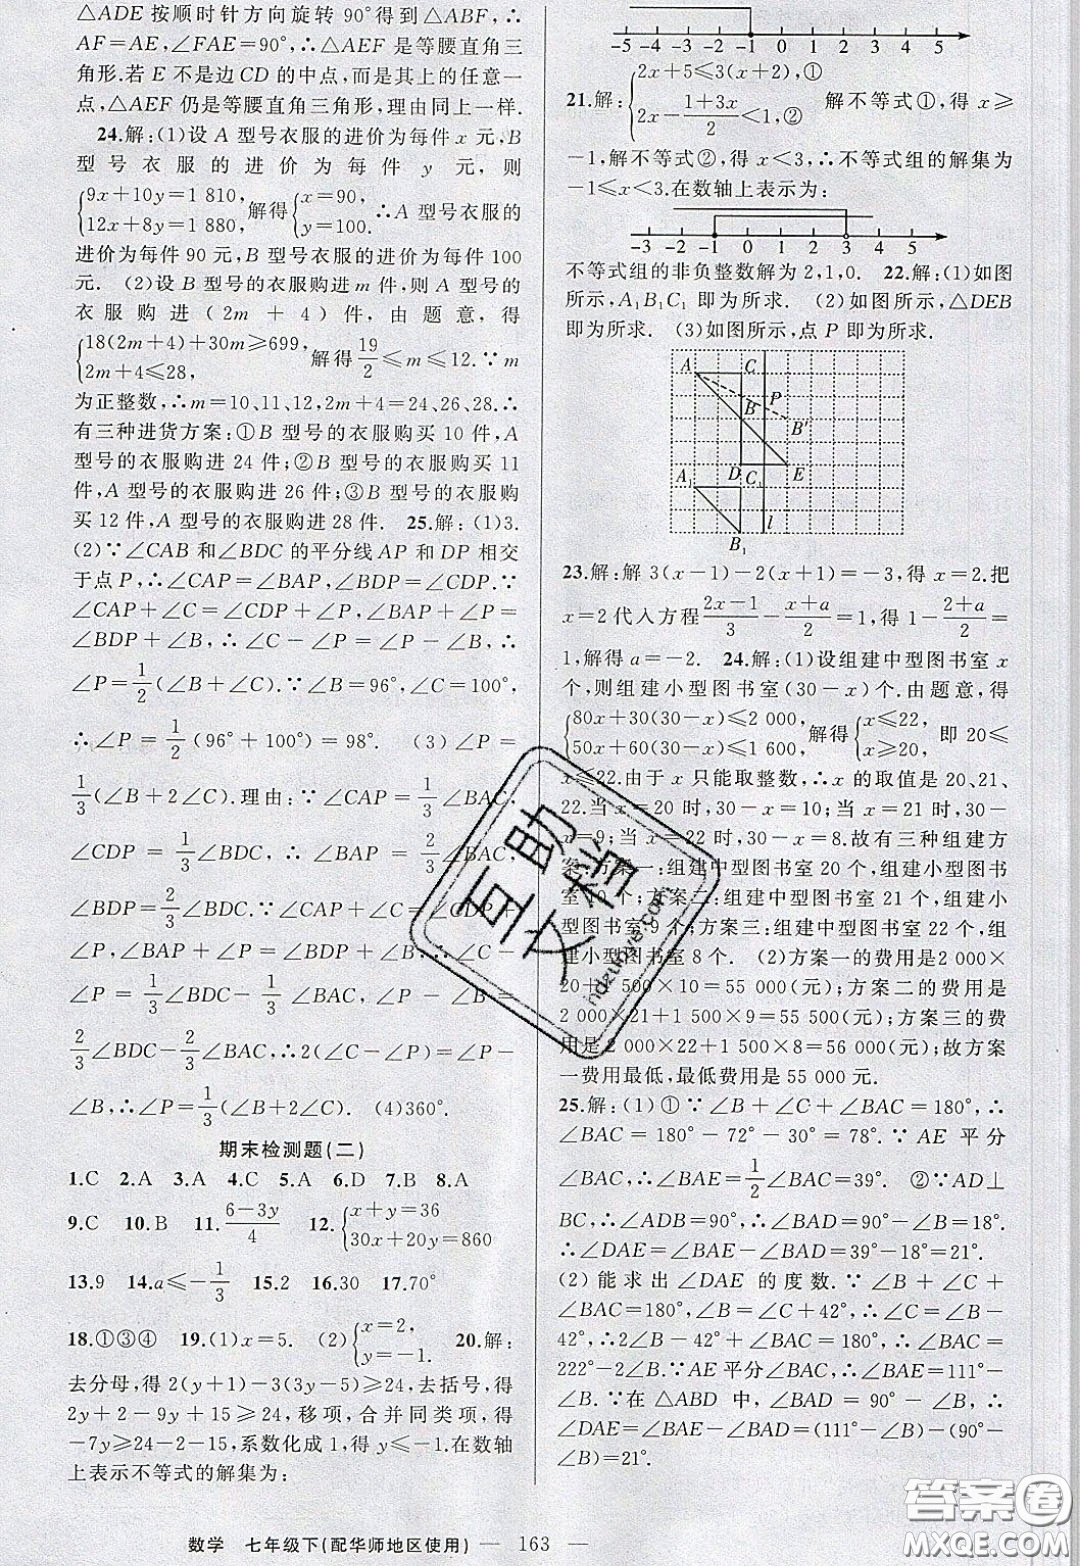 △ADE 按顺时针方向旋转 90°得到△ABF,∴
AF=AE,∠FAE=90°,∴△AEF 是等腰直角三
角形.若 E 不是边 CD 的中点,而是其上的任意一
点,△AEF 仍是等腰直角三角形,理由同上一样.
24.解:(1)设 A 型号衣服的进价为每件 x 元,B
型号衣服的进价为每件 y 元,则
{9x+10y=1 810, 12x+8y=1 880, 解得{x=90, y=100. ∴A 型号衣服的
进价为每件 90 元,B 型号衣服的进价为每件 100
元. (2)设 B 型号的衣服购进 m 件,则 A 型号的
衣服购进(2m+4)件,由题意,得
{18(2m+4)+30m≥699, 2m+4≤28, 解得 19/2≤m≤12.∵m
为正整数,∴m=10、11、12,2m+4=24、26、28.∴
有三种进货方案:①B 型号的衣服购买 10 件,A
型号的衣服购进 24 件;②B 型号的衣服购买 11
件,A 型号的衣服购进 26 件;③B 型号的衣服购
买 12 件,A 型号的衣服购进 28 件. 25.解:(1)3.
(2)∵∠CAB 和∠BDC 的平分线 AP 和 DP 相交
于点 P,∴∠CAP=∠BAP,∠BDP=∠CDP.∵
∠CAP+∠C=∠CDP+∠P,∠BAP+∠P=
∠BDP+∠B,∴∠C-∠P=∠P-∠B,∴
∠P=1/2(∠B+∠C).∵∠B=96°,∠C=100°,
∴∠P=1/2(96°+100°)=98°. (3)∠P=
1/3(∠B+2∠C).理由:∵∠CAP=1/3∠BAC,
∠CDP=1/3∠BDC,∴∠BAP=2/3∠BAC,
∠BDP=2/3∠BDC.∵∠CAP+∠C=∠CDP+
∠P,∠BAP+∠P=∠BDP+∠B,∴∠C-
∠P=1/3∠BDC-1/3∠BAC,∠P-∠B=
2/3∠BDC-2/3∠BAC,∴2(∠C-∠P)=∠P-
∠B,∴∠P=1/3(∠B+2∠C). (4)360°.
期末检测题(二)
1.C 2.A 3.A 4.C 5.A 6.D 7.B 8.A
9.C 10.B 11.(6-3y)/4 12.{x+y=36 30x+20y=860
13.9 14.a≤-1/3 15.2 16.30 17.70°
18.①③④ 19.(1)x=5. (2){x=2, y=-1. 20.解:
去分母,得 2(y+1)-3(3y-5)≥24,去括号,得
2y+2-9y+15≥24,移项,合并同类项,得
-7y≥24-2-15,系数化成 1,得 y≤-1.在数轴
上表示不等式的解集为:
-5 -4 -3 -2 -1 0 1 2 3 4 5
21.解:{2x+5≤3(x+2),① 2x-(1+3x)/2<1,② 解不等式①,得 x≥
-1,解不等式②,得 x<3,∴不等式组的解集为
-1≤x<3.在数轴上表示为:
-3 -2 -1 0 1 2 3 4 5
不等式组的非负整数解为 2,1,0. 22.解:(1)如图
所示,A₁B₁C₁ 即为所求. (2)如图所示,△DEB
即为所求. (3)如图所示,点 P 即为所求.
A C P
B B′
A₁ D C₁ E
B₁ l
23.解:解 3(x-1)-2(x+1)=-3,得 x=2.把
x=2 代入方程(2x-1)/3-(x+a)/2=1,得 1-(2+a)/2=
1,解得 a=-2. 24.解:(1)设组建中型图书室 x
个,则组建小型图书室(30-x)个.由题意,得
{80x+30(30-x)≤2 000, 50x+60(30-x)≤1 600, 解得{x≤22, x≥20, 即 20≤
x≤22.由于 x 只能取整数,∴x 的取值是 20、21、
22.当 x=20 时,30-x=10;当 x=21 时,30-
x=9;当 x=22 时,30-x=8.故有三种组建方
案:方案一:组建中型图书室 20 个,组建小型图书
室 10 个;方案二:组建中型图书室 21 个,组建小
型图书室 9 个;方案三:组建中型图书室 22 个,组
建小型图书室 8 个. (2)方案一的费用是 2 000×
20+1 500×10=55 000(元);方案二的费用是
2 000×21+1 500×9=55 500(元);方案三的费
用是 2 000×22+1 500×8=56 000(元);故方案
一费用最低,最低费用是 55 000 元.
25.解:(1)①∵∠B+∠C+∠BAC=180°,∴
∠BAC=180°-72°-30°=78°.∵AE 平分
∠BAC,∴∠BAE=1/2∠BAC=39°. ②∵AD⊥
BC,∴∠ADB=90°,∴∠BAD=90°-∠B=18°.
∴∠DAE=∠BAE-∠BAD=39°-18°=21°.
(2)能求出∠DAE 的度数.∵∠B+∠C+
∠BAC=180°,∠B=∠C+42°,∴∠C=∠B-
42°,∴2∠B-42°+∠BAC=180°,∴∠BAC=
222°-2∠B.∵AE 平分∠BAC,∴∠BAE=111°-
∠B.∵在△ABD 中,∠BAD=90°-∠B,∴
∠DAE=∠BAE-∠BAD=(111°-∠B)-(90°-
∠B)=21°.
数学 七年级下(配华师地区使用) — 163 —
互助文档
hdzuhye.com
答案圈
MXQE.COM